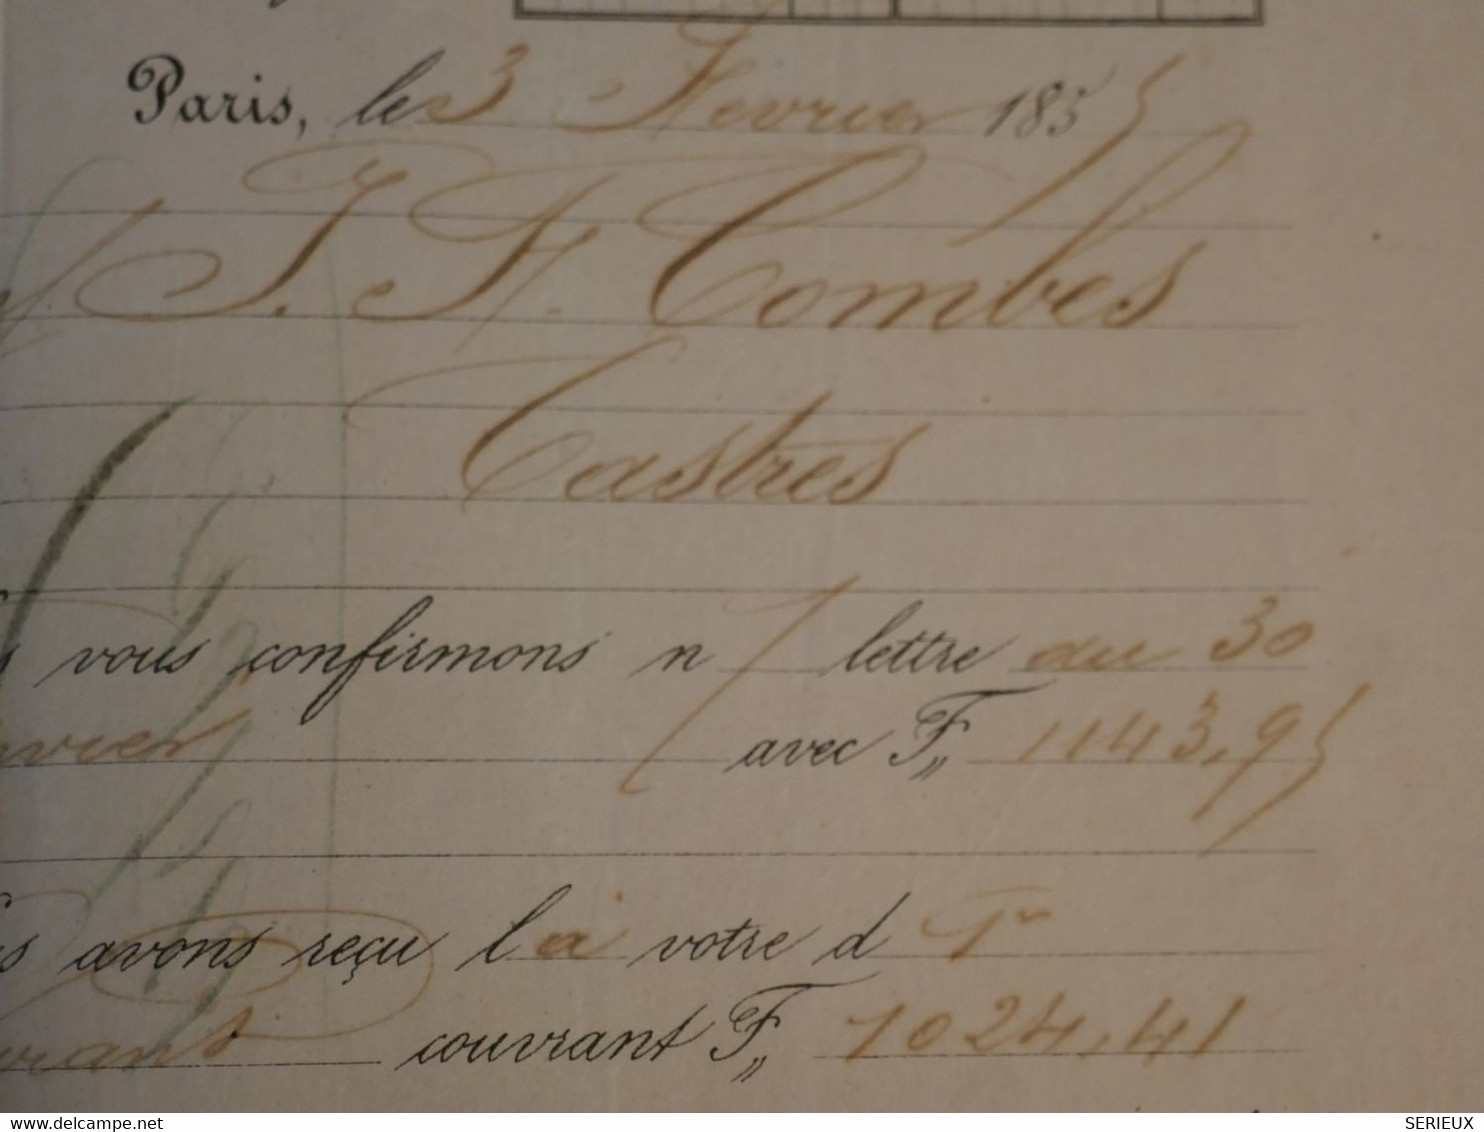 Paris, le 3 Fevrier 1855
J. H. Combes
Castres
vous confirmons n lettre du 30
avec F,, 1143,95
avons reçu la votre d 1er
courant F,, 1024,41
SERIEUX